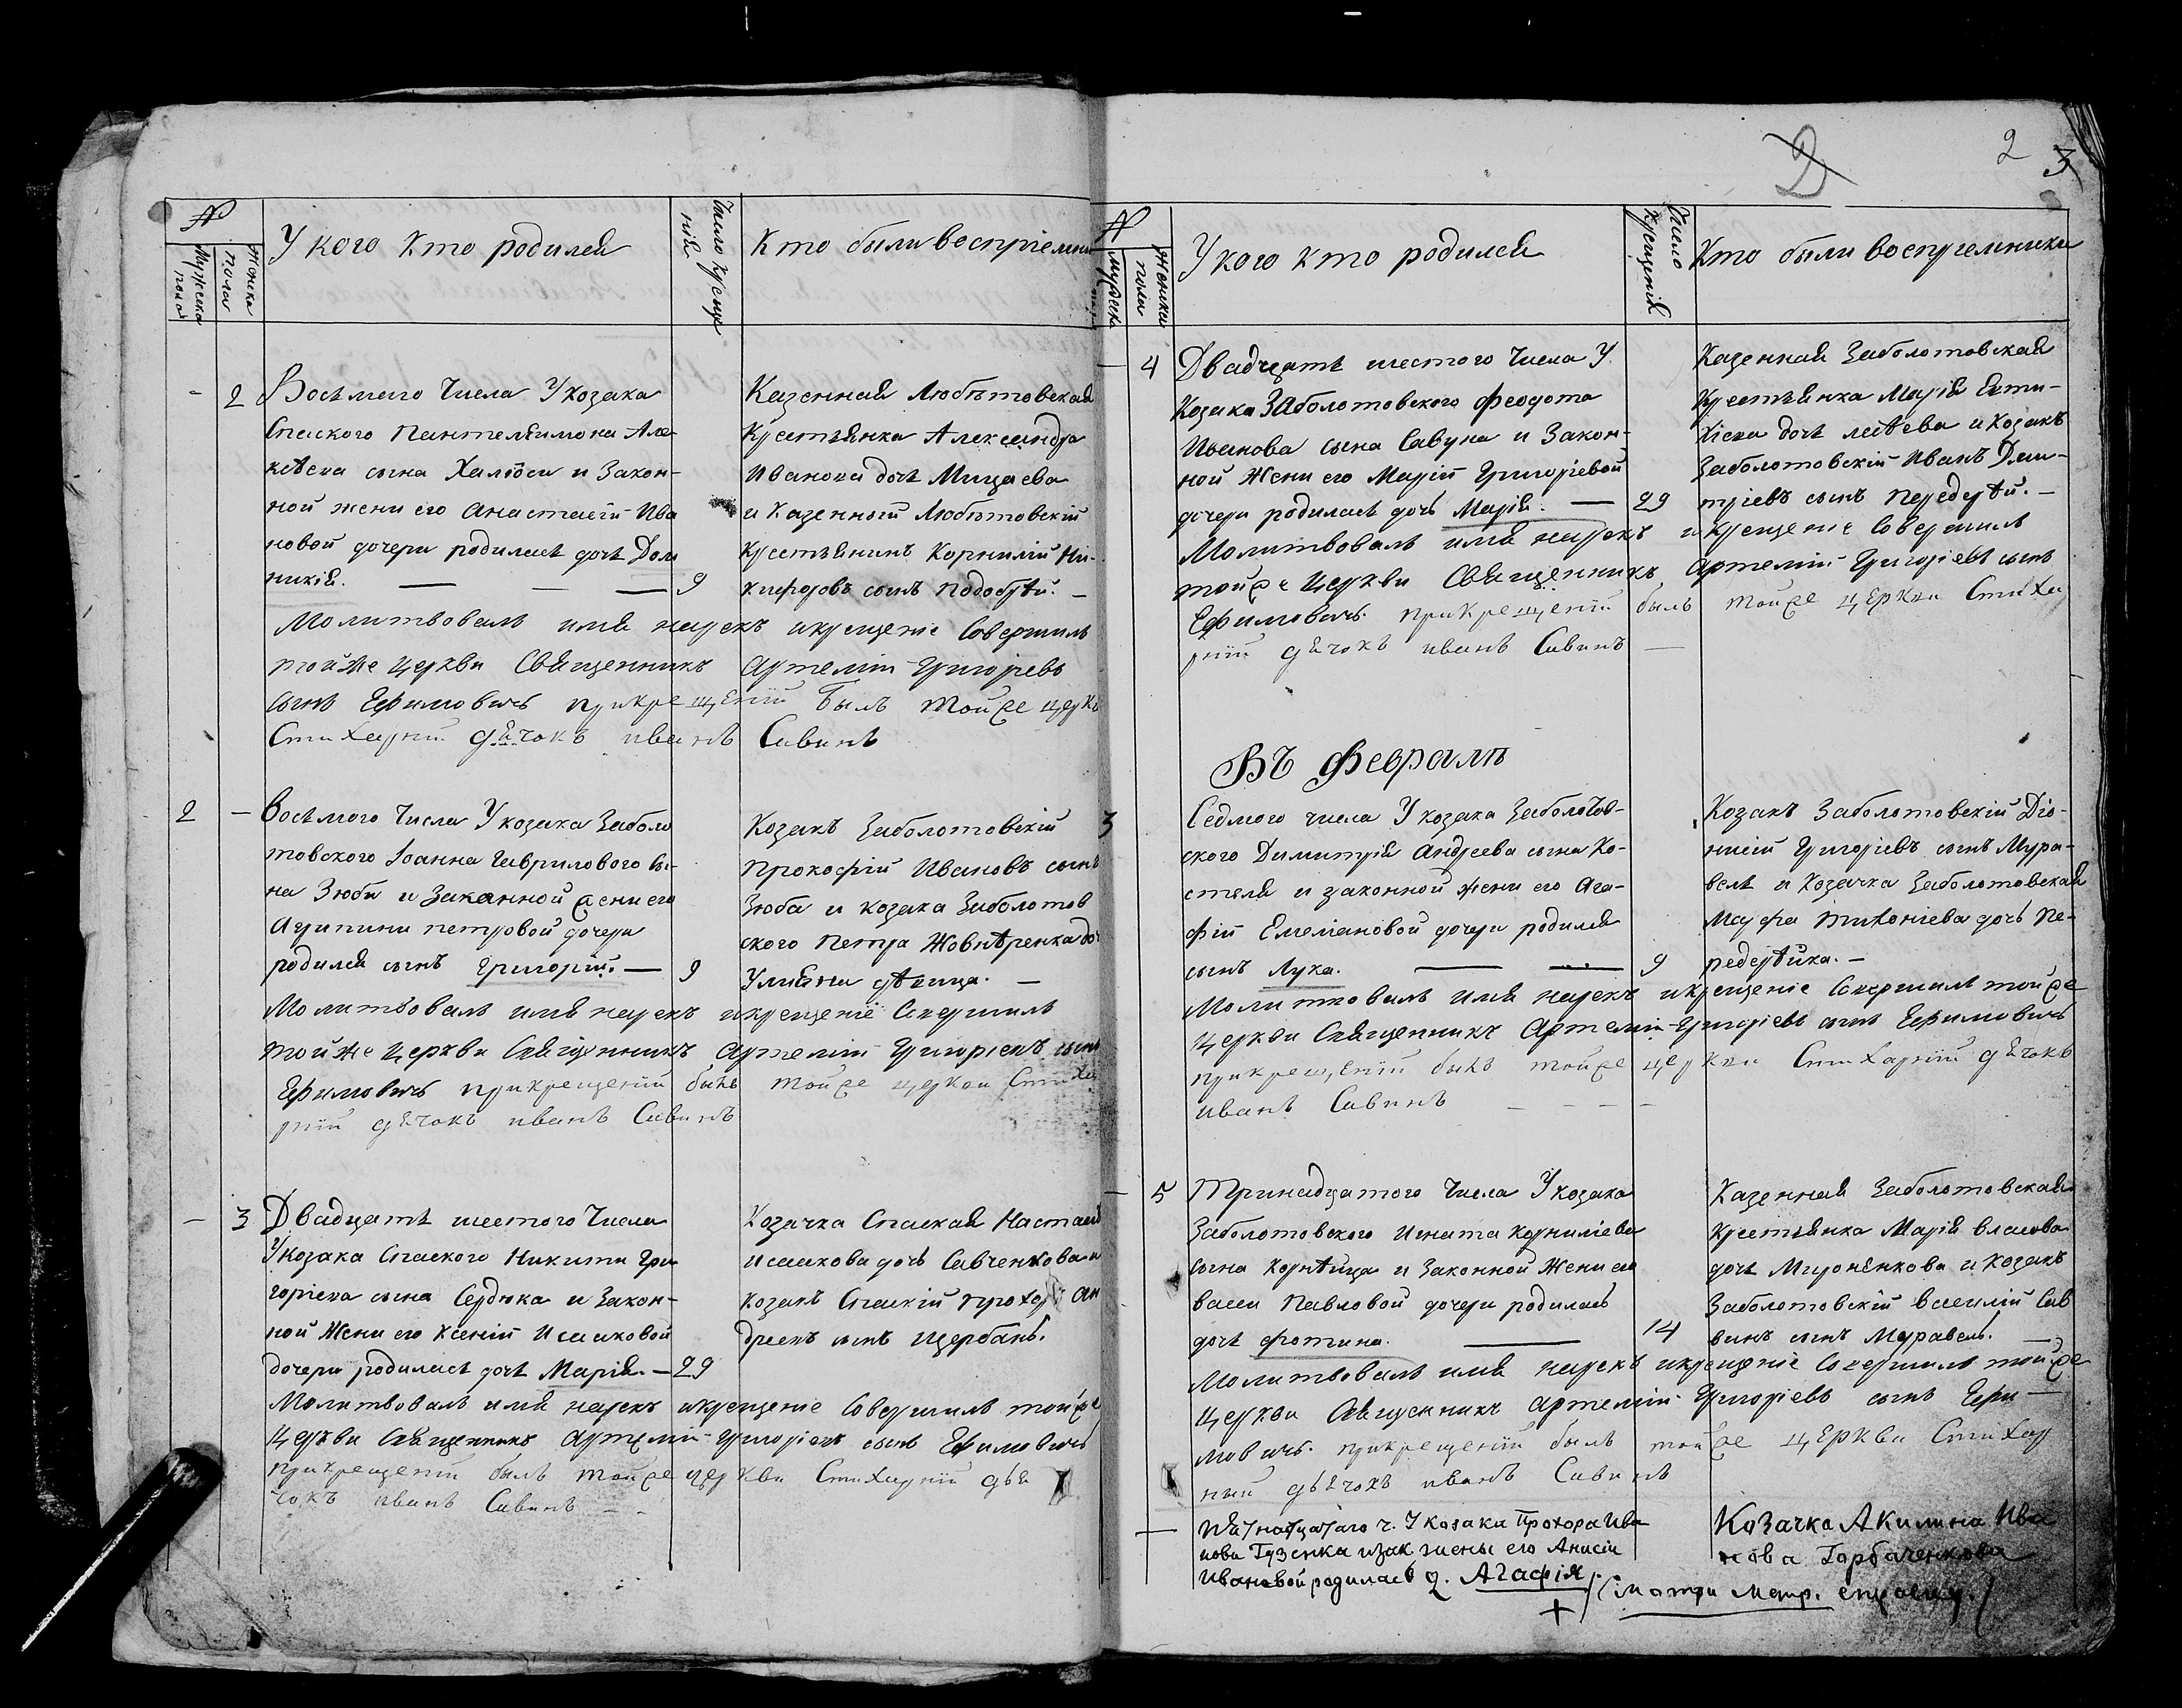 №
Мужеска пола
Женска пола
У кого кто родился
Число крещенія
Кто были воспріемники
- 2 Восмого Числа У козака
Спаского Пантелѣимона Але
ксѣева сына Халюби и Закон-
ной жени его Анастасіи Ива
новой дочери родилась дочь Дом
никія. — — — 9
Казенная Любѣтовская
Крестьянка Александра
Иванова дочь Мицаева
и Казенный Любѣтовскій
Крестьянинъ Корнилій Ни-
кифоровъ сынъ Подобѣй. —
Молитвовалъ имя нарекъ икрещеніе Совершилъ
тойже Церкви Священникъ Артемій Григоріевъ
сынъ Ефимовичъ прикрещеніи былъ тойже церк
Стихарній дячокъ иванъ Савинъ
2 — Восмого Числа У козака Заболо
товского Іоанна Гаврилового сы-
на Зюби и Законной жени его
Агрипини петровой дочери
родился сынъ Григорій. — 9
Козакъ Заболотовскій
Прокофій Ивановъ сынъ
Зюба и козака Заболотов
ского Петра Жовнѣренка доч
Улияна дѣвица. —
Молитвовалъ имя нарекъ икрещеніе Совершилъ
тойже Церкви Священникъ Артемій Григоріевъ сынъ
Ефимовичъ прикрещеніи былъ тойже церкви Стиха
рній дячокъ иванъ Савинъ
— 3 Двадцать шестого Числа
У козака Спаского Никити Гри
горіева сына Сердюка и Закон-
ной Жени его Ксеніи Исааковой
дочери родилась дочь Марія. — 29
Козачка Спаская Настасія
Исаакова дочь Савченкова и
козакъ Спаскій Прохоръ Ан
дреевъ сынъ Щербакъ.
Молитвовалъ имя нарекъ икрещеніе Совершилъ тойже
Церкви Священникъ Артемій Григоріевъ сынъ Ефимовичъ
прикрещеніи былъ тойже церкви Стихарній дья
чокъ иванъ Савинъ — -
2
2 3
№
Мужеск
Женска пола
У кого кто родился
Число крещенія
Кто были воспрiемники
— 4 Двадцать шестого Числа У
Козака Заболотовского Феодота
Иванова сына Савуна и Закон-
ной Жени его Маріи Григоріевой
дочери родилась дочь Марія. — 29
Казенная Заболотовская
Крестьянка Марія Евти-
хіева дочь и Козакъ
Заболотовскій Иванъ Дми-
тріевъ сынъ Передерѣй. —
Молитвовалъ имя нарекъ икрещеніе Совершилъ
тойже Церкви Священникъ Артемій Григоріевъ сынъ
Ефимовичъ. прикрещеніи былъ тойже церкви Стиха
рній дячокъ иванъ Савинъ —
Въ Февралѣ
3 Седмого числа У козака Заболотов-
ского Димитрія Андреева сына Ко-
стеля и законной жени его Ага-
фіи Емеліановой дочери родился
сынъ Лука. — — 9
Козакъ Заболотовскій Діо-
нисій Григоріевъ сынъ Мура-
вель и Козачка Заболотовская
Марфа дочь Пе-
редерѣйка. —
Молитвовалъ имя нарекъ икрещеніе Совершилъ тойже
церкви Священникъ Артемій Григоріевъ сынъ Ефимовичъ
прикрещеніи былъ тойже церкви Стихарній дячокъ
иванъ Савинъ — — — —
— 5 Тринадцатого Числа У козака
Заболотовского Игната Корниліева
сына Корнѣйца и Законной Жени его
Васси Павловой дочери родилась
дочь Фотина. — 14
Казенная Заболотовская
Крестьянка Марія Власова
дочь Миронѣнкова и Козакъ
Заболотовскій Василій Сав
винъ сынъ Муравель. —
Молитвовалъ имя нарекъ икрещеніе Совершилъ тойже
церкви Священникъ Артемій Григоріевъ сынъ Ефи—
мовичъ. прикрещеніи былъ тойже церкви Стихар
ный дьячокъ иванъ Савинъ
— Пятнатцатаго ч. У козака Прохора Ива
нова Гузенка изак жены его Анисіи
Ивановой родилась д. Агафія.
Козачка Акилина Ива
нова Горбаченкова
+ (смотри метр.